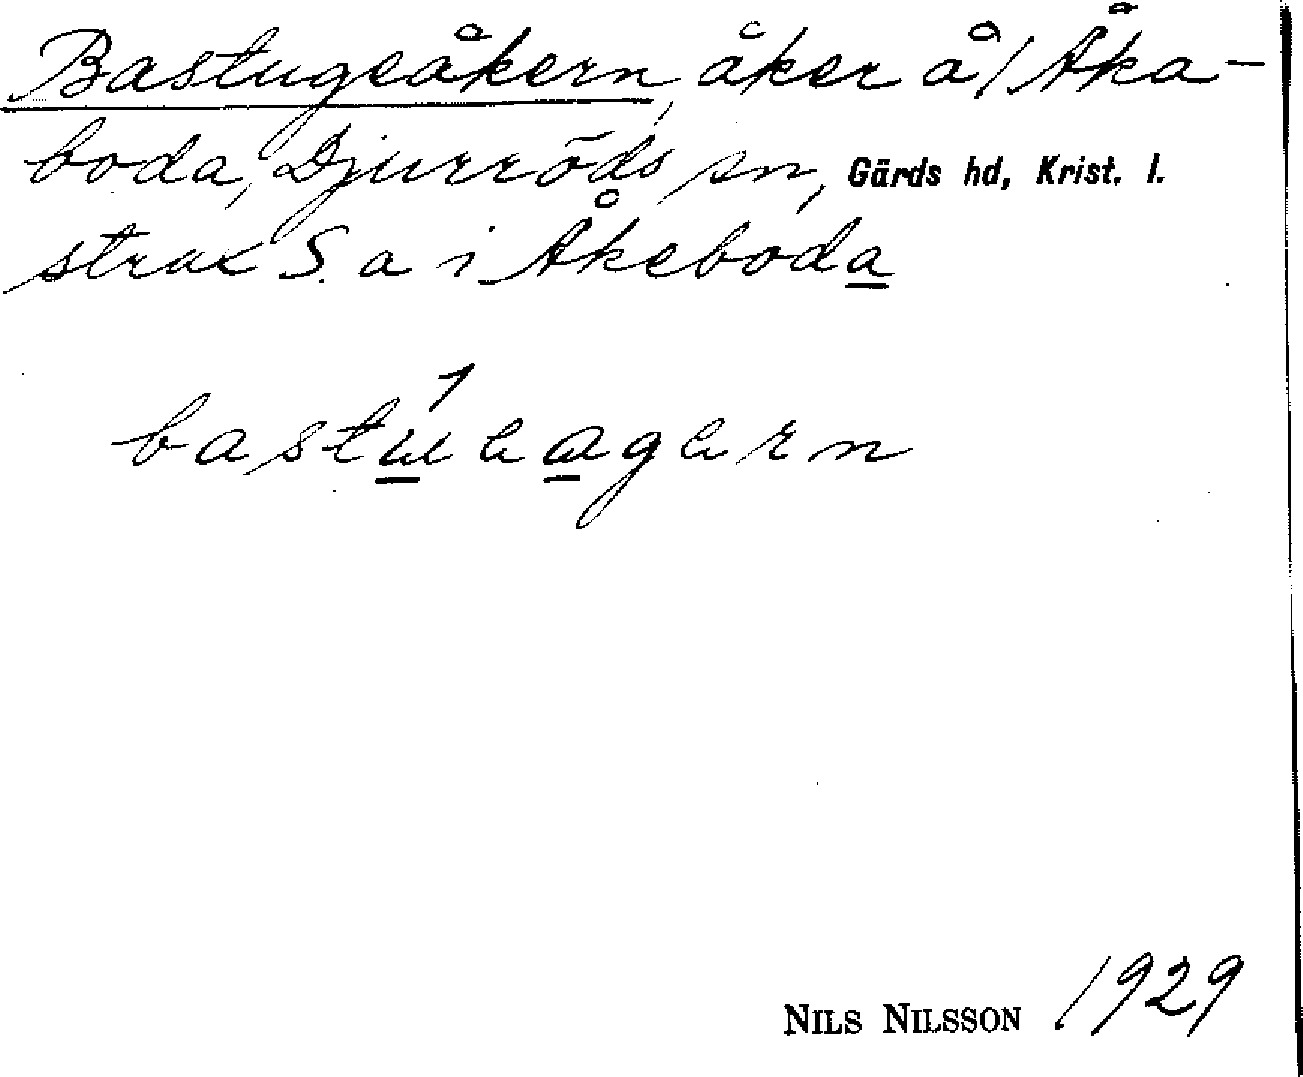 Bastugeåkern, åker å/ Åka-
boda, Djurröds sn, Gärds hd, Krist. l.
strax S. a i Åkeboda
bastúeagern
NILS NILSSON 1929